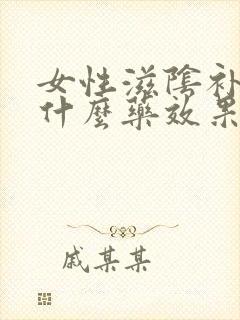 女性滋陰补
什麼藥效果
戚某某